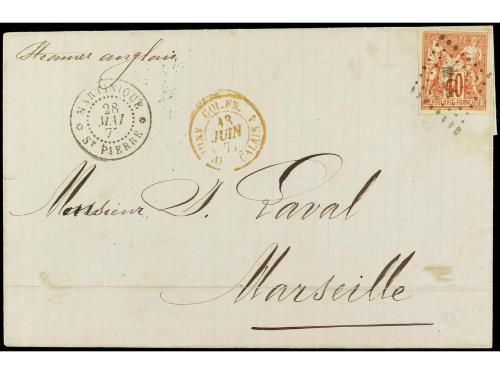 Steamer anglais
MARTINIQUE
28
MAI
7
ST PIERRE
COL. FR.
13
JUIN
7
CALAIS
40
Monsieur D. Laval
Marseille